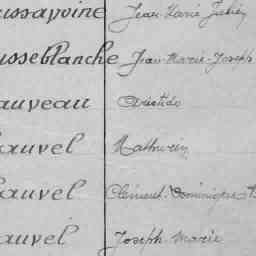 ussavoine Jean Marie Julien
usseblanche Jean-Marie-Joseph
auveau Aristide
auvel Mathurin
auvel Clément-Dominique
auvel Joseph-Marie